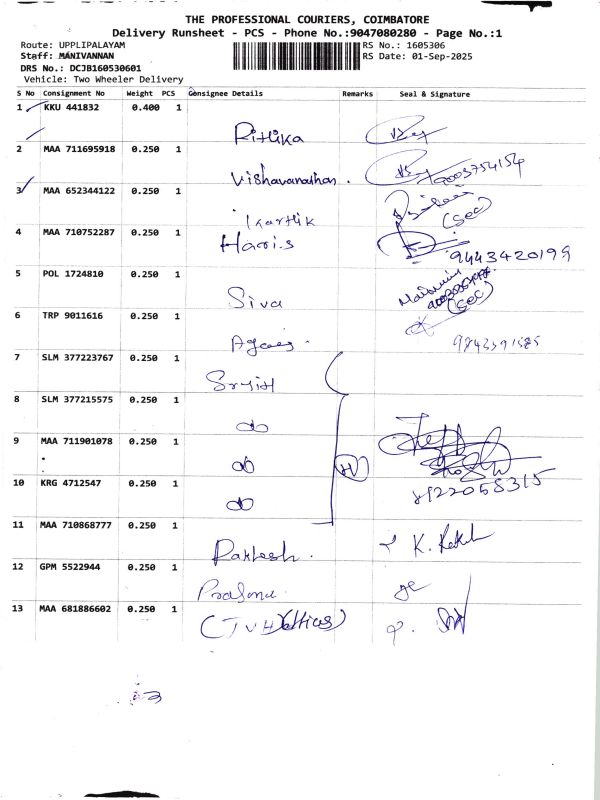 THE PROFESSIONAL COURIERS, COIMBATORE
Delivery Runsheet - PCS - Phone No.:9047080280 - Page No.:1
Route: UPPLIPALAYAM RS No.: 1605306
Staff: MANIVANNAN RS Date: 01-Sep-2025
DRS No.: DCJB160530601
Vehicle: Two Wheeler Delivery
S No Consignment No Weight PCS Consignee Details Remarks Seal & Signature
1 KKU 441832 0.400 1
Rithika
2 MAA 711695918 0.250 1
Vishavanathan. 9003754154
3 MAA 652344122 0.250 1
Karthik (sec)
4 MAA 710752287 0.250 1
Harris 9443420199
5 POL 1724810 0.250 1
Siva (sec)
6 TRP 9011616 0.250 1
7 SLM 377223767 0.250 1
Srijith
8 SLM 377215575 0.250 1
do
9 MAA 711901078 0.250 1
do (H)
10 KRG 4712547 0.250 1
do
11 MAA 710868777 0.250 1
Rakhesh. K.
12 GPM 5522944 0.250 1
13 MAA 681886602 0.250 1